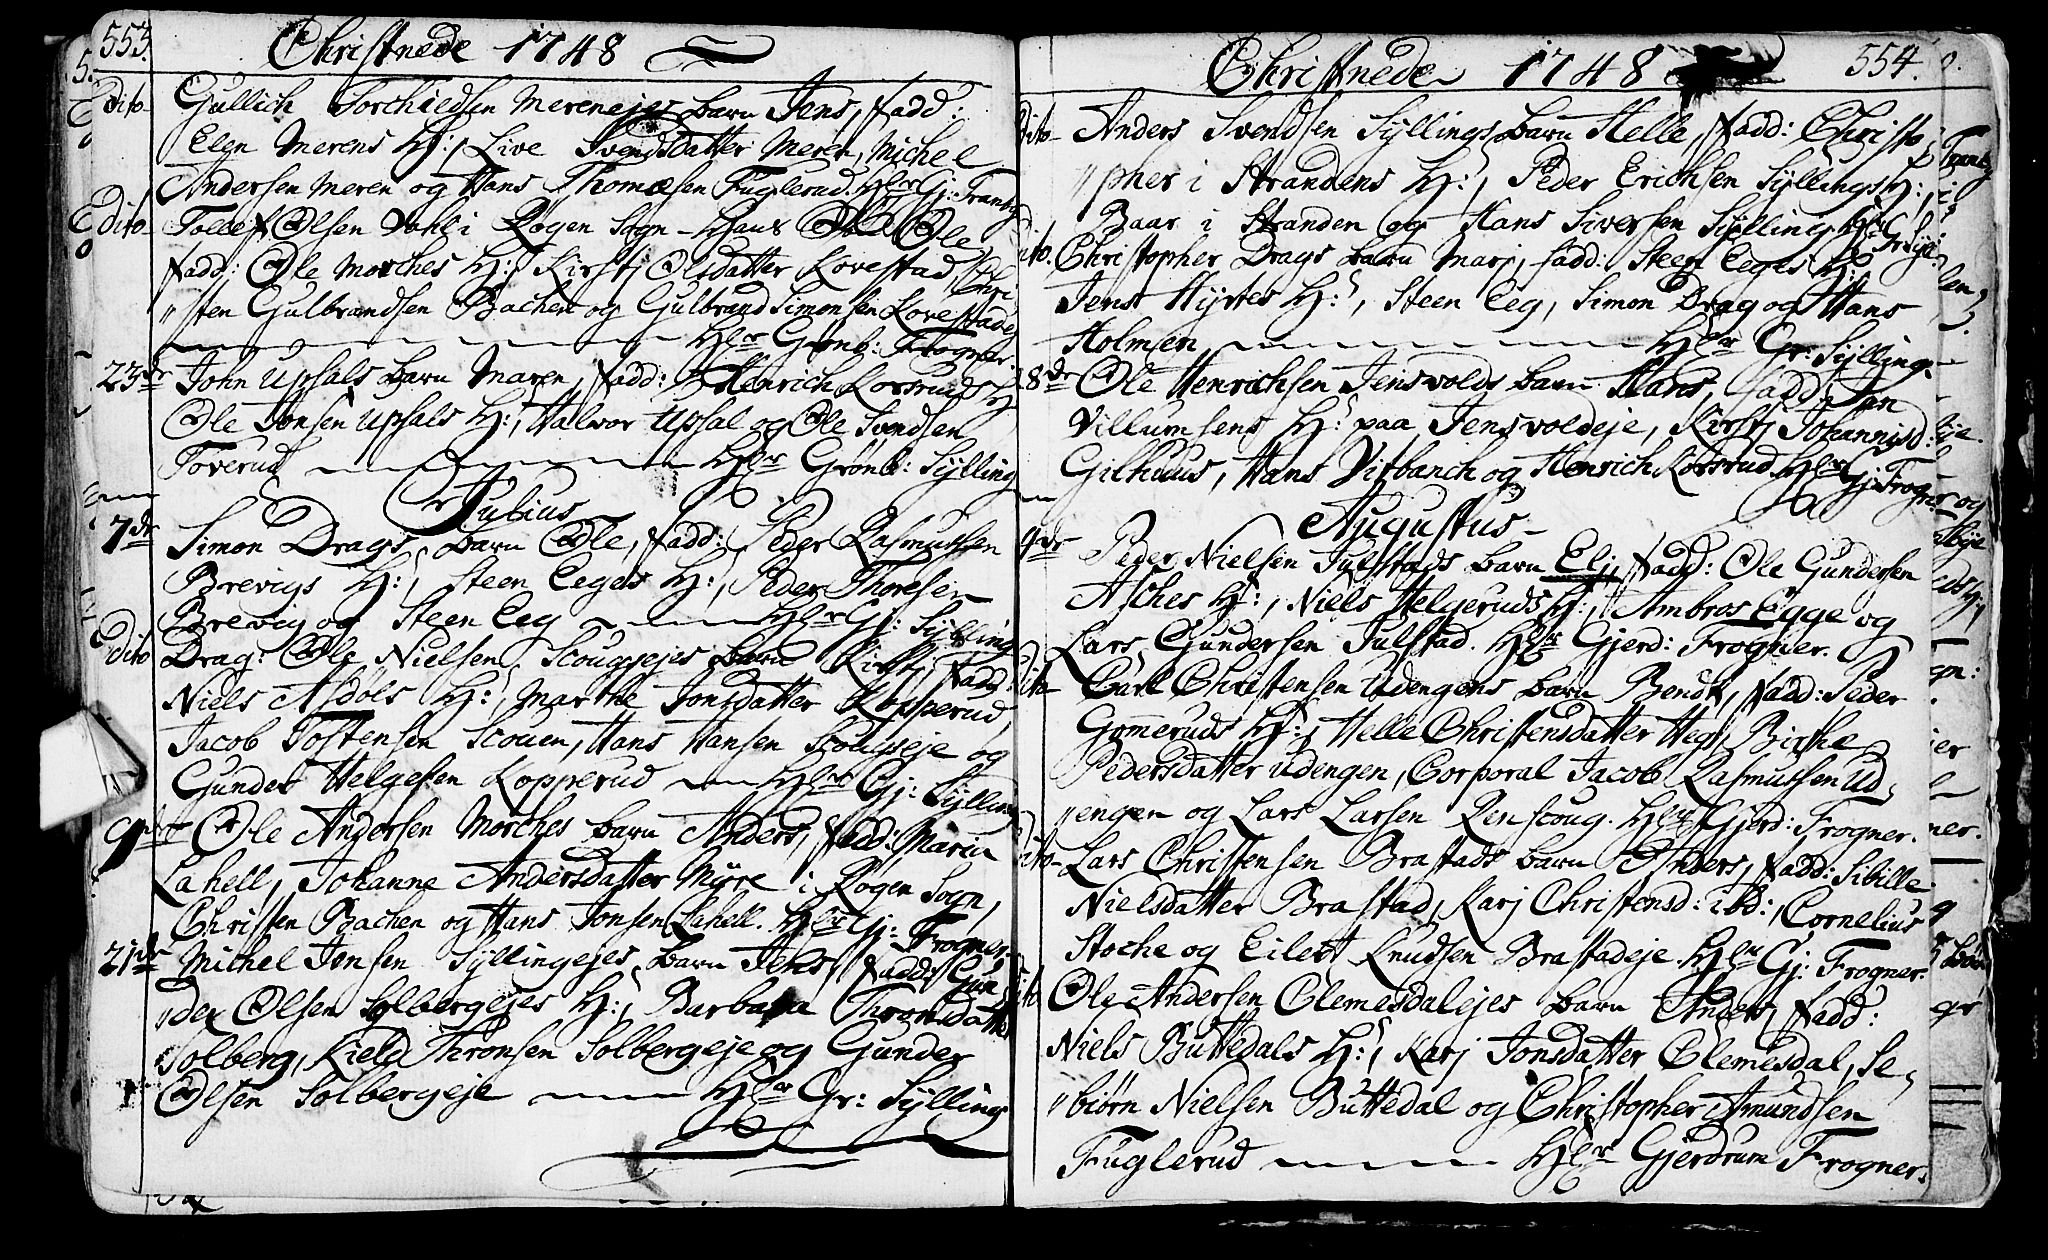 553.
Christnede 1748
dito Gullich Torchiedsen Merenejes barn Jens, fadd:
Elen Merens H:, Live Svendsdatter Meren, Michel
Andersen Meren og Hans Thomæsen Fuglerud. Hlr Gj: Tranby
dito Tollef Olsen Dahl i Røgen Sogn - Ole
fadd: Ole Morches H: Kirstj Olsdatter Lovestad, Chri
"sten Gulbrandsen Bachen og Gulbrand Simonsen Lovestadej
Hlr Grønb: Frogner
23de John Upsals barn Maren, fadd: Henrich Korsruds H
Ole Jonsen Upsals H:, Halvor Upsal og Ole Svendsen
Toverud Hlr Grønb: Sylling
Julius
7de Simon Drags barn Ole, fadd: Peder Rasmussen
Brevigs H:, Steen Eeges H:, Peder Thoresen
Brevig og Steen Eeg Hlr Gj: Sylling
dito Drag: Ole Nielsen Scougsejes barn Kirstj, fadd:
Niels Asdøls H:, Marthe Jonsdatter Kopperud
Jacob Tostensen Scouen, Hans Hansen Scougseje og
Gunder Helgesen Kopperud Hlr Gj: Sylling
9de Ole Andersen Morches barn Anders, fadd: Maria
Lahell, Johanne Andersdatter Myre i Røgen Sogn,
Christen Bachen og Hans Jonsen Lahell. Hlr Gj: Frogner
21de Michel Jonsen Syllingejes barn Jens, fadd: Gun
"der Olsen Solbergejes H:, Barbara Thronsdatter
Solberg, Kield Thronsen Solbergeje og Gunder
Olsen Solbergeje Hlr Gr: Sylling
Christnede 1748 554.
dito Anders Svendsen Syllings barn Helle, fadd: Christo
"pher i Strandens H:, Peder Erichsen Syllings H:,
Baar i Stranden og Hans Siversen Sylling Hlr Gr: Syl:
dito. Christopher Drags barn Marj, fadd: Steen Eeges H:
Jens Hyrtes H:, Steen Eeg, Simon Drag og Hans
Holmen Hlr Gr: Sylling
28de Ole Henrichsen Jensvolds barn Hans, fadd: Jan
Villumsens H: paa Jensvoldeje, Kirstj Johannisd:
Gilhuus, Hans Vitbanch og Henrich Korsrud. Hlr Gj: Frogner
Augustus
9de Peder Nielsen Julstads barn Elj, fadd: Ole Gundersen
Asches H:, Niels Helgeruds H:, Ambros Egge og
Lars Gundersen Julstad. Hlr Gjerd: Frogner.
dito Carl Christensen Udengens barn Bendt, fadd: Peder
Gomeruds H:, Helle Christensdatter Heg, Birthe
Pedersdatter Udengen, Corporal Jacob Rasmussen Ud
"engen og Lars Larsen Renscoug. Hlr Gjerd: Frogner.
dito Lars Christensen Brastads barn Anders, fadd: Sibille
Nielsdatter Brastad, Karj Christensd: ibd:, Cornelius
Stoche og Eilert Knudsen Brastadeje. Hlr Gj: Frogner.
dito Ole Andersen Clemesdalejes barn Anders, fadd:
Niels Buttedals H:, Karj Jonsdatter Clemesdal, Se
"biørn Nielsen Buttedal og Christopher Amundsen
Fuglerud Hlr Gjerdrum Frogner.